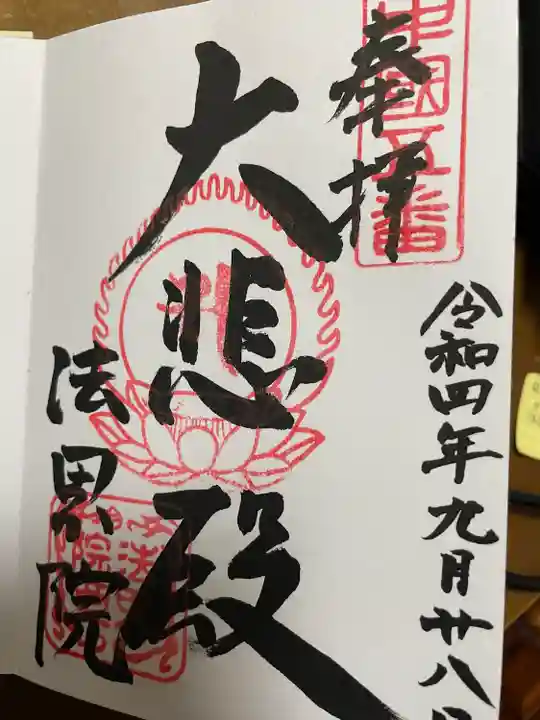 令和四年九月廿八日
中國五番
奉拝
大悲殿
法界院